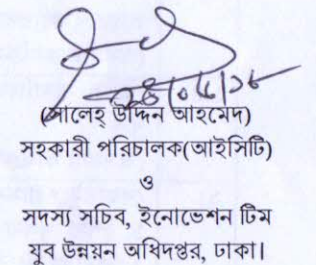 (সালেহ্ উদ্দিন আহমেদ)
সহকারী পরিচালক(আইসিটি)
ও
সদস্য সচিব, ইনোভেশন টিম
যুব উন্নয়ন অধিদপ্তর, ঢাকা।